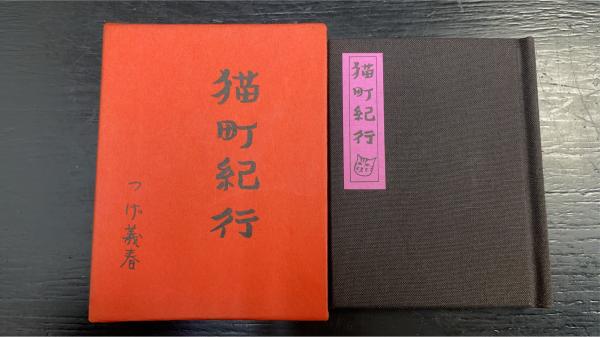 猫町紀行
つげ義春
猫町紀行